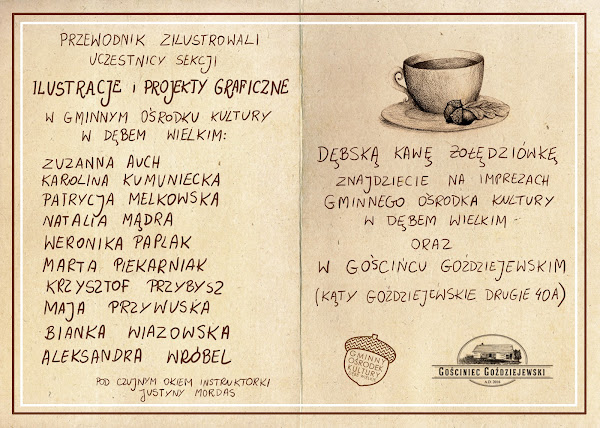 PRZEWODNIK ZILUSTROWALI
UCZESTNICY SEKCJI
ILUSTRACJE i PROJEKTY GRAFICZNE
W GMINNYM OŚRODKU KULTURY
W DĘBEM WIELKIM:
ZUZANNA AUCH
KAROLINA KUMUNIECKA
PATRYCJA MELKOWSKA
NATALIA MĄDRA
WERONIKA PAPLAK
MARTA PIEKARNIAK
KRZYSZTOF PRZYBYSZ
MAJA PRZYWUSKA
BIANKA WIAZOWSKA
ALEKSANDRA WRÓBEL
POD CZUJNYM OKIEM INSTRUKTORKI
JUSTYNY MORDAS
DĘBSKĄ KAWĘ ŻOŁĘDZIÓWKĘ
ZNAJDZIECIE NA IMPREZACH
GMINNEGO OŚRODKA KULTURY
W DĘBEM WIELKIM -
ORAZ
W GOŚCIŃCU GOŹDZIEJEWSKIM
(KĄTY GOŹDZIEJEWSKIE DRUGIE 40A)
GMINNY
OŚRODEK
KULTURY
DĘBE WIELKIE
GOŚCINIEC GOŹDZIEJEWSKI